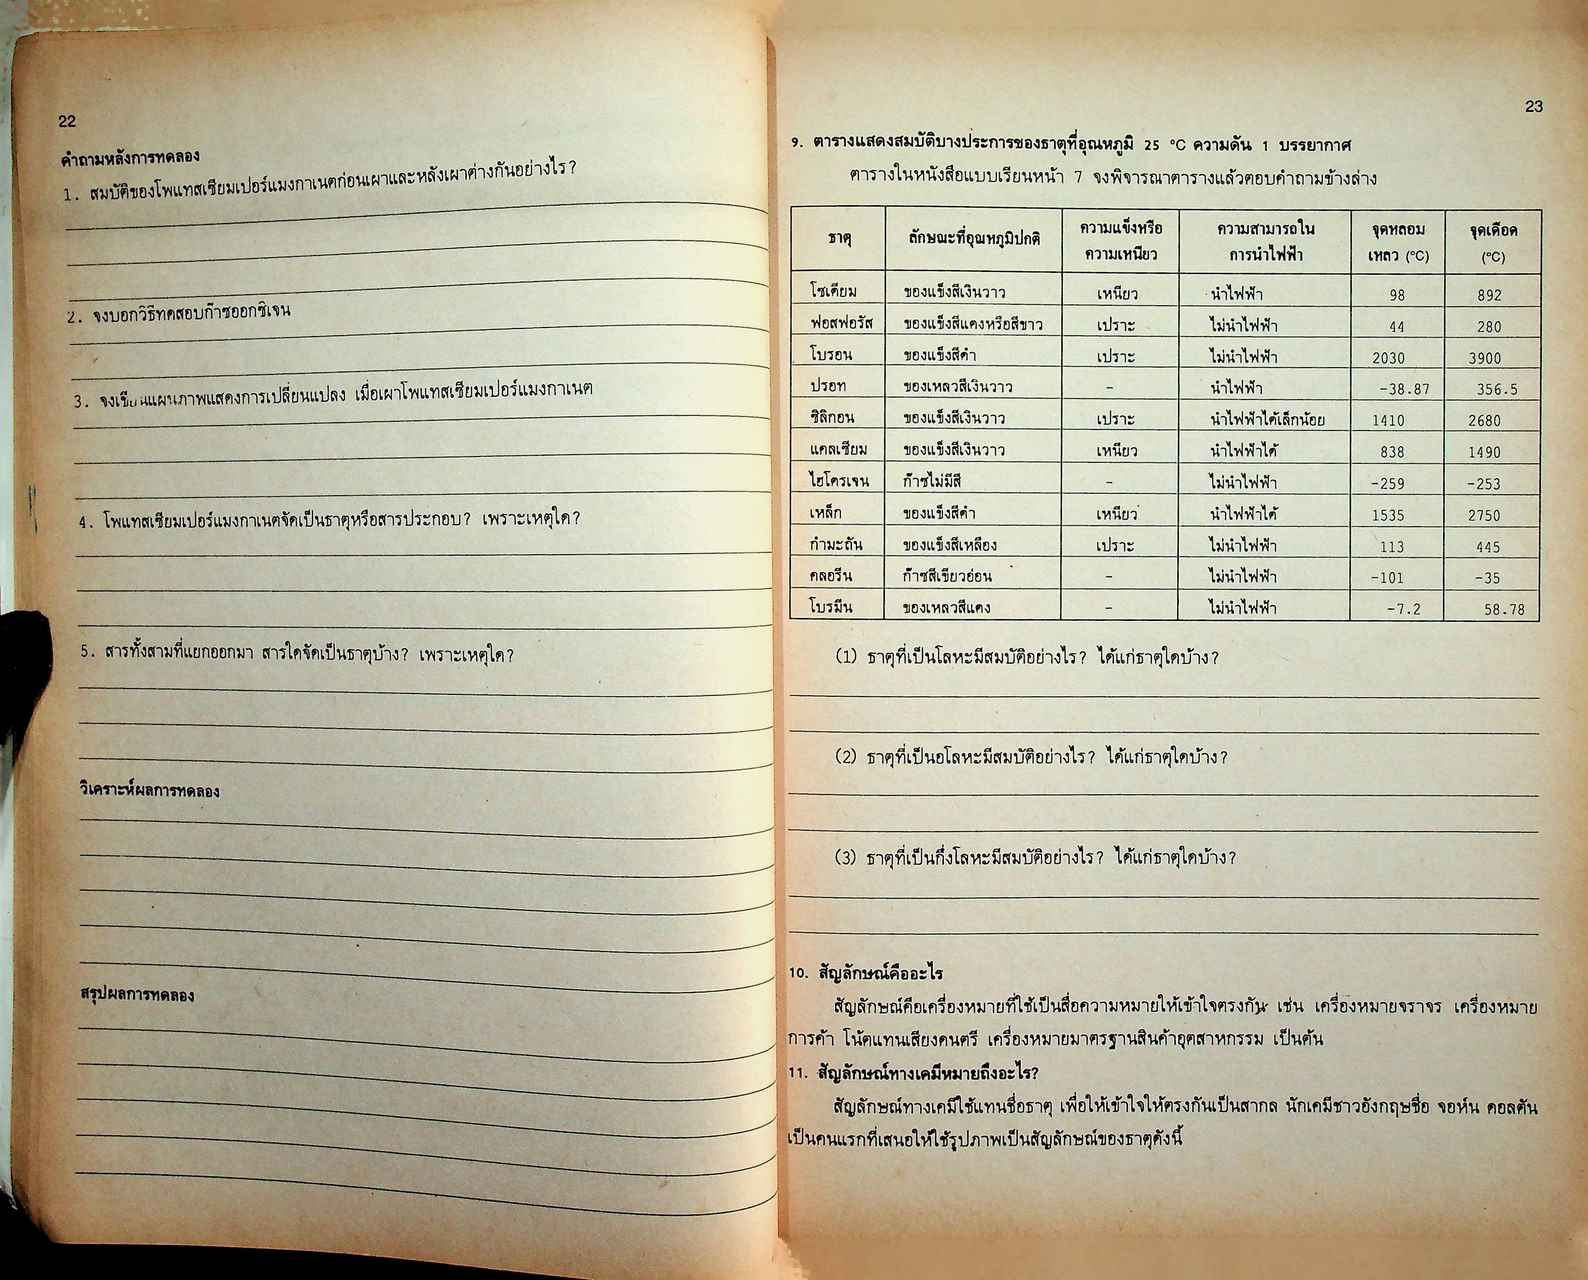 22
คำถามหลังการทดลอง
1. สมบัติของโพแทสเซียมเปอร์แมงกาเนตก่อนเผาและหลังเผาต่างกันอย่างไร?
2. จงบอกวิธีทดสอบก๊าซออกซิเจน
3. จงเขียนแผนภาพแสดงการเปลี่ยนแปลง เมื่อเผาโพแทสเซียมเปอร์แมงกาเนต
4. โพแทสเซียมเปอร์แมงกาเนตจัดเป็นธาตุหรือสารประกอบ? เพราะเหตุใด?
5. สารทั้งสามที่แยกออกมา สารใดจัดเป็นธาตุบ้าง? เพราะเหตุใด?
วิเคราะห์ผลการทดลอง
สรุปผลการทดลอง
23
9. ตารางแสดงสมบัติบางประการของธาตุที่อุณหภูมิ 25 °C ความดัน 1 บรรยากาศ
ตารางในหนังสือแบบเรียนหน้า 7 จงพิจารณาตารางแล้วตอบคำถามข้างล่าง
ธาตุ ลักษณะที่อุณหภูมิปกติ ความแข็งหรือความเหนียว ความสามารถในการนำไฟฟ้า จุดหลอมเหลว (°C) จุดเดือด (°C)
โซเดียม ของแข็งสีเงินวาว เหนียว นำไฟฟ้า 98 892
ฟอสฟอรัส ของแข็งสีแดงหรือสีขาว เปราะ ไม่นำไฟฟ้า 44 280
โบรอน ของแข็งสีดำ เปราะ ไม่นำไฟฟ้า 2030 3900
ปรอท ของเหลวสีเงินวาว - นำไฟฟ้า -38.87 356.5
ซิลิกอน ของแข็งสีเงินวาว เปราะ นำไฟฟ้าได้เล็กน้อย 1410 2680
แคลเซียม ของแข็งสีเงินวาว เหนียว นำไฟฟ้าได้ 838 1490
ไฮโดรเจน ก๊าซไม่มีสี - ไม่นำไฟฟ้า -259 -253
เหล็ก ของแข็งสีดำ เหนียว นำไฟฟ้าได้ 1535 2750
กำมะถัน ของแข็งสีเหลือง เปราะ ไม่นำไฟฟ้า 113 445
คลอรีน ก๊าซสีเขียวอ่อน - ไม่นำไฟฟ้า -101 -35
โบรมีน ของเหลวสีแดง - ไม่นำไฟฟ้า -7.2 58.78
(1) ธาตุที่เป็นโลหะมีสมบัติอย่างไร? ได้แก่ธาตุใดบ้าง?
(2) ธาตุที่เป็นอโลหะมีสมบัติอย่างไร? ได้แก่ธาตุใดบ้าง?
(3) ธาตุที่เป็นกึ่งโลหะมีสมบัติอย่างไร? ได้แก่ธาตุใดบ้าง?
10. สัญลักษณ์คืออะไร
สัญลักษณ์คือเครื่องหมายที่ใช้เป็นสื่อความหมายให้เข้าใจตรงกัน เช่น เครื่องหมายจราจร เครื่องหมาย
การค้า โน้ตแทนเสียงดนตรี เครื่องหมายมาตรฐานสินค้าอุตสาหกรรม เป็นต้น
11. สัญลักษณ์ทางเคมีหมายถึงอะไร?
สัญลักษณ์ทางเคมีใช้แทนชื่อธาตุ เพื่อให้เข้าใจให้ตรงกันเป็นสากล นักเคมีชาวอังกฤษชื่อ จอห์น ดอลตัน
เป็นคนแรกที่เสนอให้ใช้รูปภาพเป็นสัญลักษณ์ของธาตุดังนี้